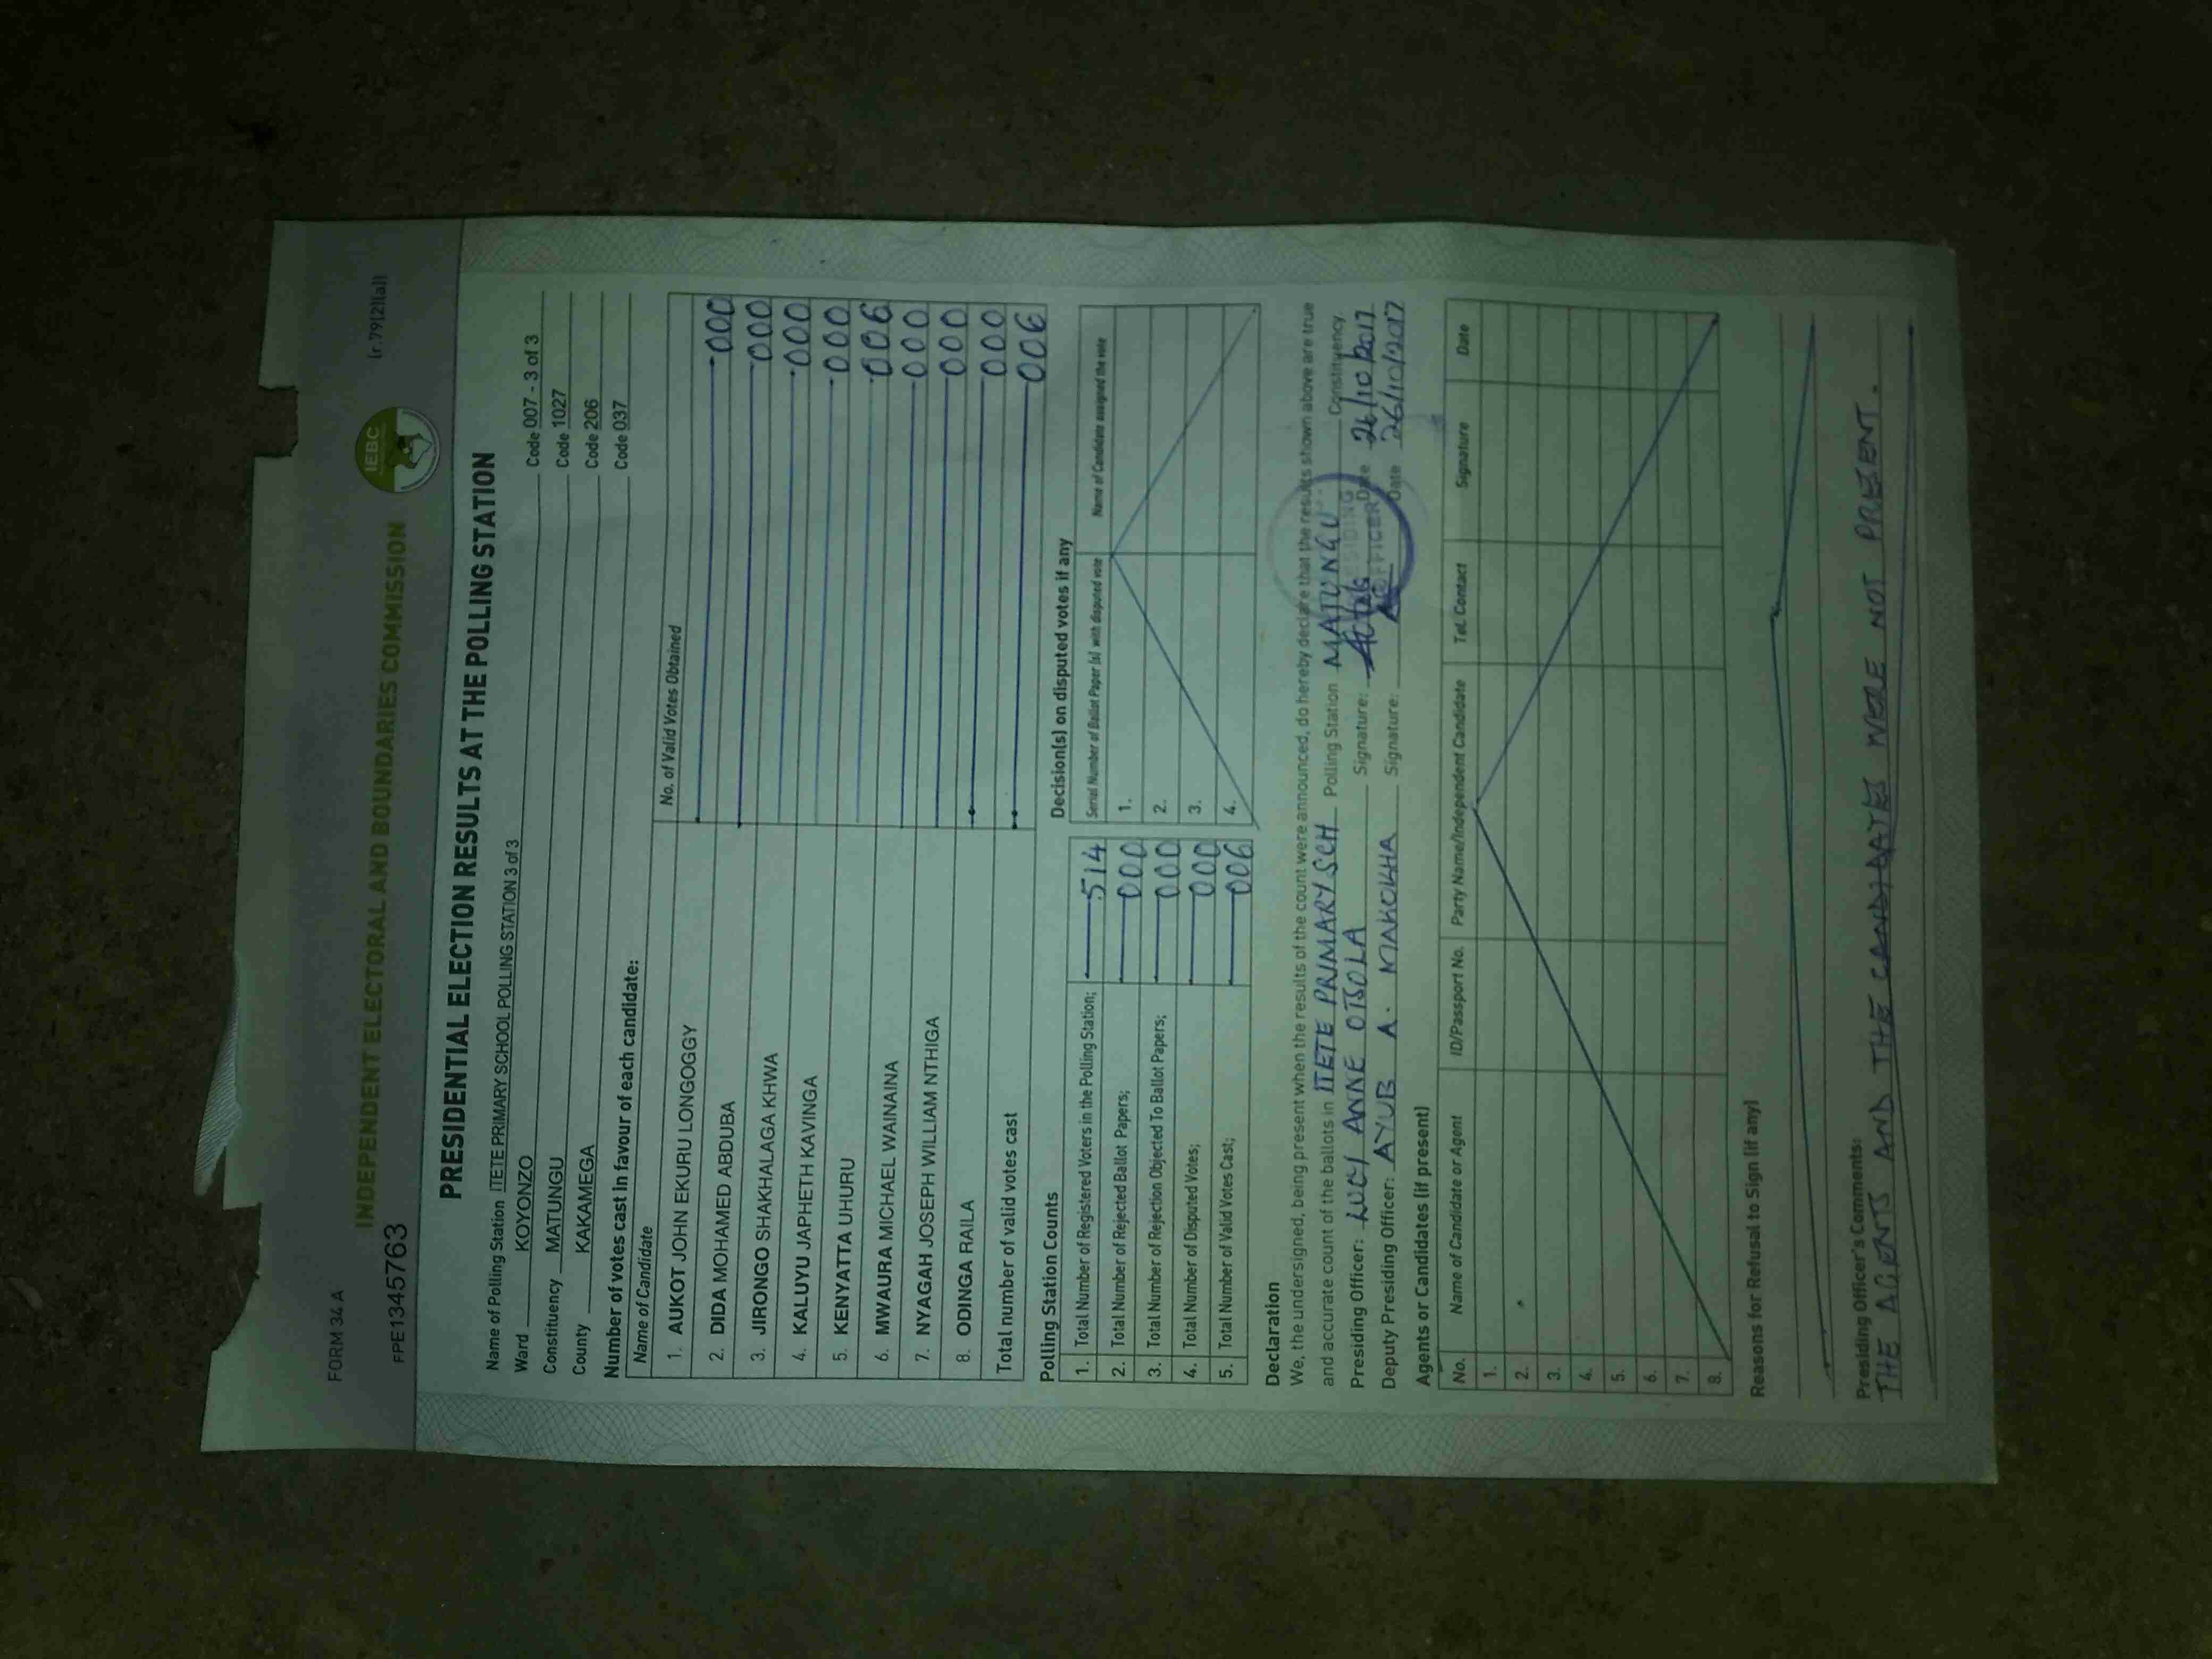 FORM 34 A
(r.79(2)(a))
INDEPENDENT ELECTORAL AND BOUNDARIES COMMISSION
IEBC
FPE1345763
PRESIDENTIAL ELECTION RESULTS AT THE POLLING STATION
Name of Polling Station ITETE PRIMARY SCHOOL POLLING STATION 3 of 3 Code 007 - 3 of 3
Ward KOYONZO Code 1027
Constituency MATUNGU Code 206
County KAKAMEGA Code 037
Number of votes cast in favour of each candidate:
Name of Candidate No. of Valid Votes Obtained
1. AUKOT JOHN EKURU LONGOGGY 000
2. DIDA MOHAMED ABDUBA 000
3. JIRONGO SHAKHALAGA KHWA 000
4. KALUYU JAPHETH KAVINGA 000
5. KENYATTA UHURU 006
6. MWAURA MICHAEL WAINAINA 000
7. NYAGAH JOSEPH WILLIAM NTHIGA 000
8. ODINGA RAILA 000
Total number of valid votes cast 006
Polling Station Counts
1. Total Number of Registered Voters in the Polling Station; 514
2. Total Number of Rejected Ballot Papers; 000
3. Total Number of Rejection Objected To Ballot Papers; 000
4. Total Number of Disputed Votes; 000
5. Total Number of Valid Votes Cast; 006
Decision(s) on disputed votes if any
Serial Number of Ballot Paper (s) with disputed vote Name of Candidate assigned the vote
1.
2.
3.
4.
Declaration
We, the undersigned, being present when the results of the count were announced, do hereby declare that the results shown above are true
and accurate count of the ballots in ITETE PRIMARY SCH Polling Station MATUNGU Constituency
Presiding Officer: LUCY ANNE OTSOLA Signature: Date 26/10/2017
Deputy Presiding Officer: AYUB A. MAKOKHA Signature: Date 26/10/2017
PRESIDING OFFICER
Agents or Candidates (if present)
No. Name of Candidate or Agent ID/Passport No. Party Name/Independent Candidate Tel. Contact Signature Date
1.
2.
3.
4.
5.
6.
7.
8.
Reasons for Refusal to Sign (if any)
Presiding Officer's Comments:
THE AGENTS AND THE CANDIDATES WERE NOT PRESENT.